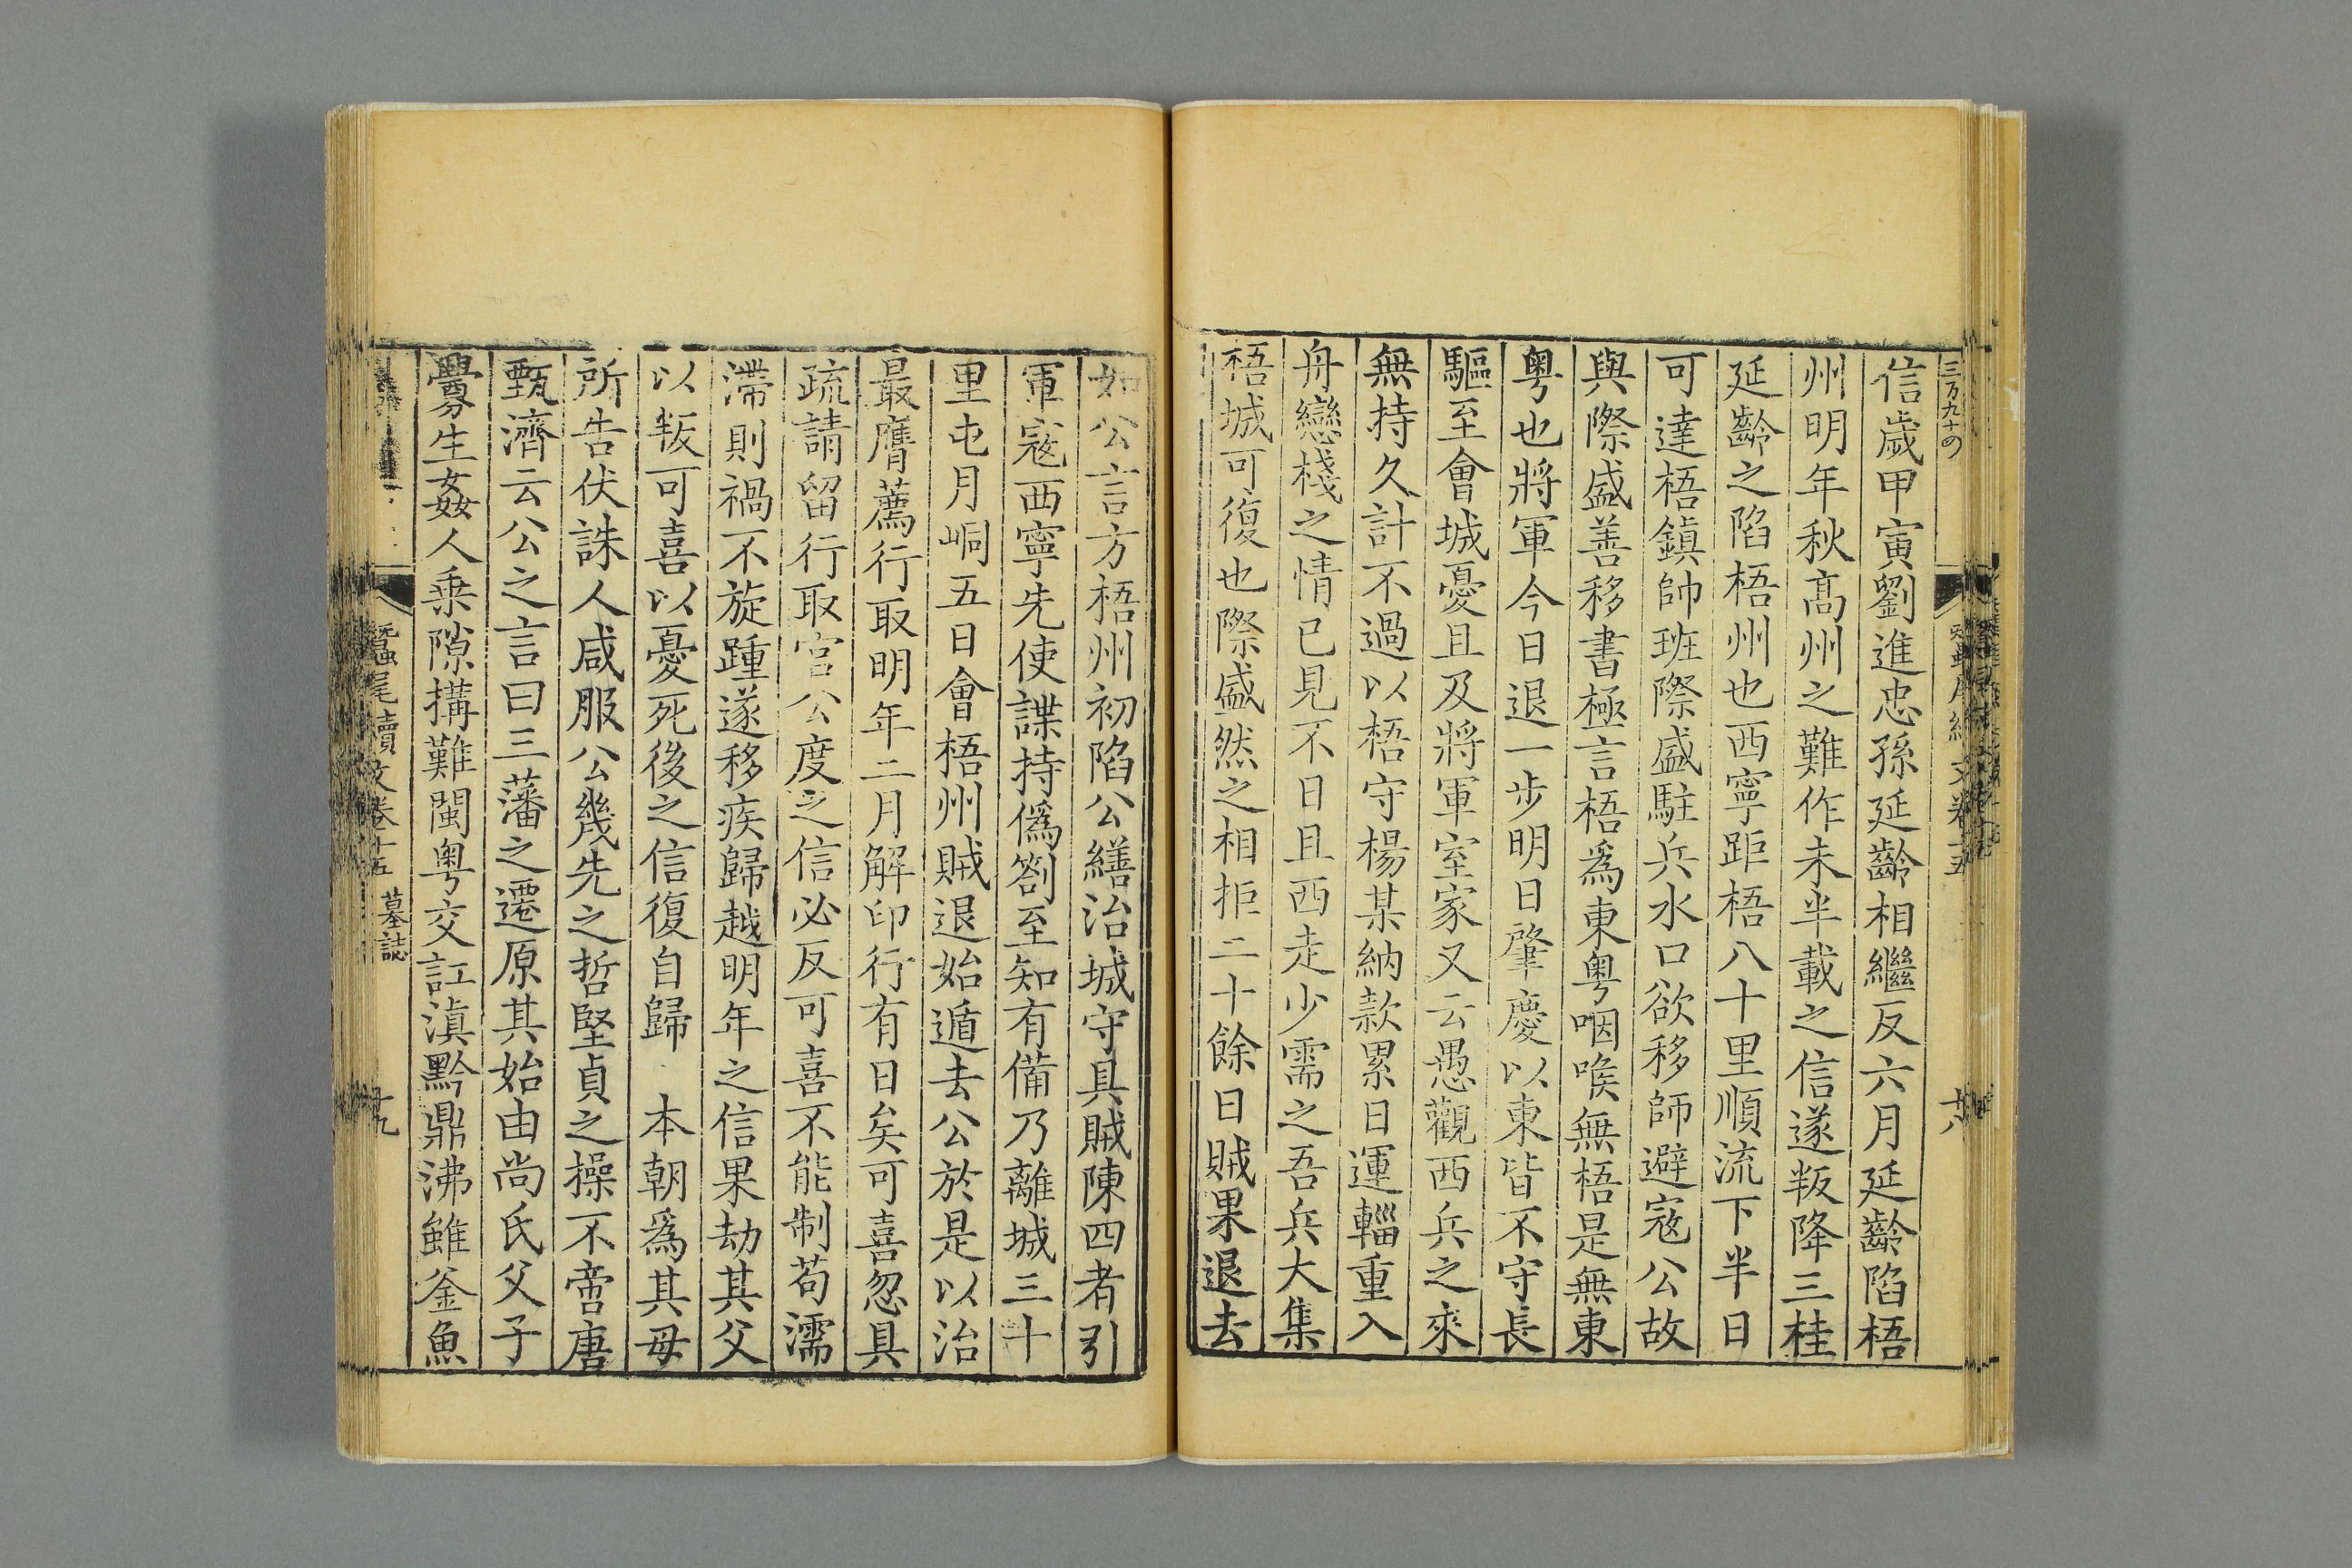 三万九十四
信歲甲寅劉進忠孫延齡相繼反六月延齡陷梧
州明年秋髙州之難作未半載之信遂叛降三桂
延齡之陷梧州也西寧距梧八十里順流下半日
可達梧鎮帥班際盛駐兵水口欲移師避宼公故
與際盛善移書極言梧爲東粤咽喉無梧是無東
粤也將軍今日退一步明日肇慶以東皆不守長
驅至會城憂且及將軍室家又云愚觀西兵之來
無持久計不過以梧守楊某納款累日運輜重入
舟戀棧之情已見不日且西走少需之吾兵大集
梧城可復也際盛然之相拒二十餘日賊果退去
如公言方梧州初陷公繕治城守具賊陳四者引
軍宼西寧先使諜持僞劄至知有備乃離城三十
里屯月峒五日會梧州賊退始遁去公於是以治
最膺薦行取明年二月解印行有日矣可喜忽具
疏請留行取官公度之信必反可喜不能制苟濡
滯則禍不旋踵遂移疾歸越明年之信果劫其父
以叛可喜以憂死後之信復自歸 本朝爲其母
所告伏誅人咸服公幾先之哲堅貞之操不啻唐
甄濟云公之言曰三藩之遷原其始由尚氏父子
釁生姦人乗隙搆難閩粤交訌滇黔鼎沸雖釜魚
蠶尾續文卷十五 墓誌 十九